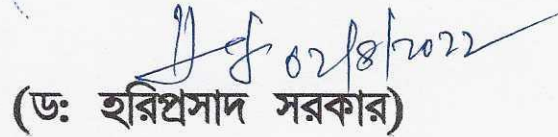 02/8/2022
(ড: হরিপ্রসাদ সরকার)